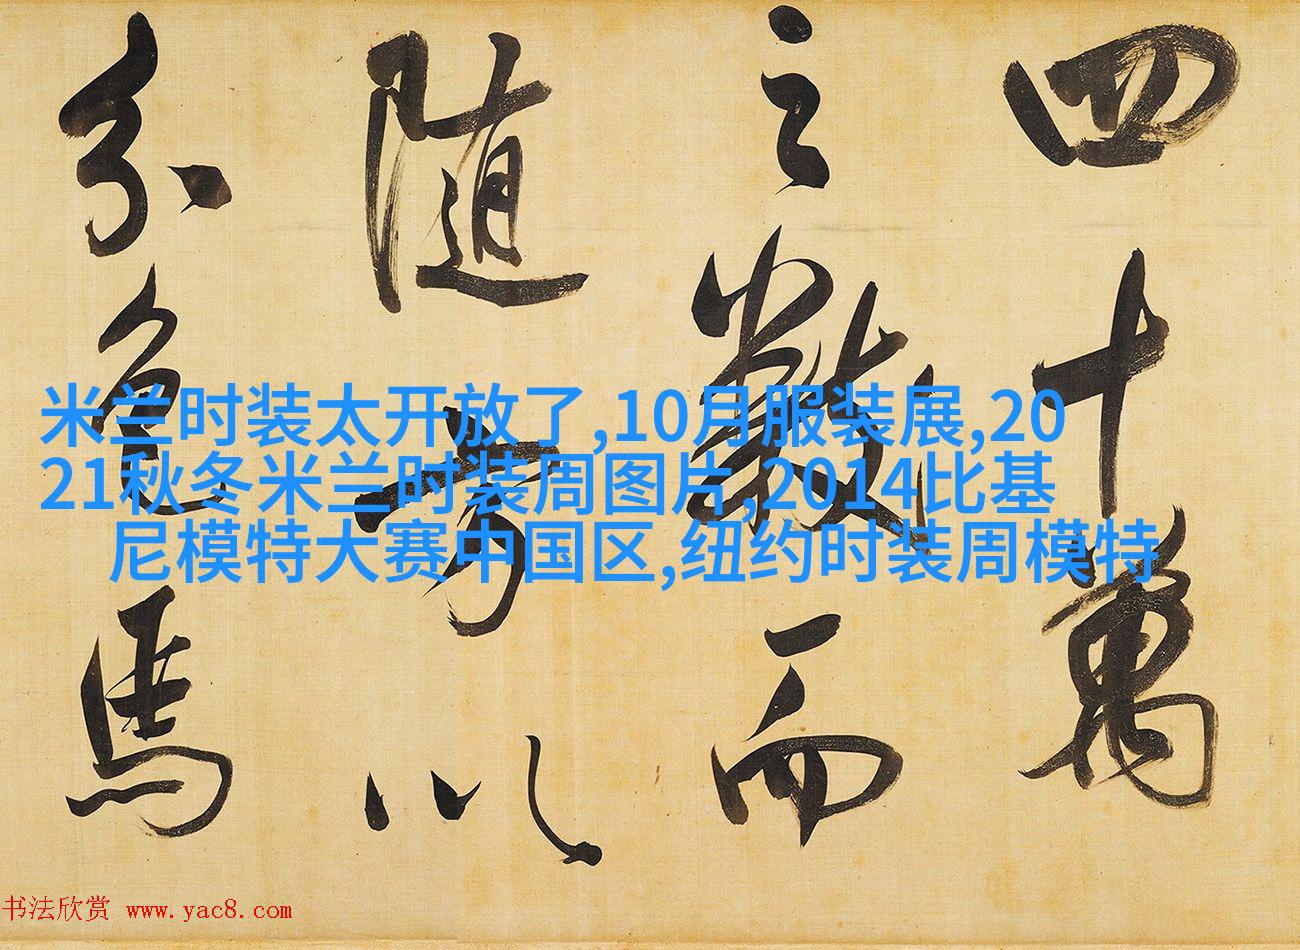 四十萬
之數而
随方以
分色馬
米兰时装太开放了,10月服装展,20
21秋冬米兰时装周图片,2014比基
尼模特大赛中国区,纽约时装周模特
书法欣赏 www.yac8.com